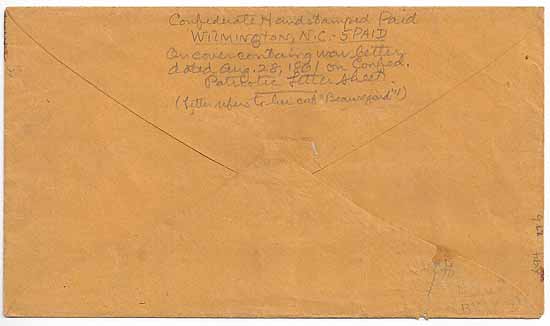 Confederate Handstamped Paid
WILMINGTON, N.C. - 5 PAID
On cover containing war letter
dated Aug. 28, 1861 on Confed.
Patriotic Letter Sheet.
(Letter refers to her "Beauregard"!)